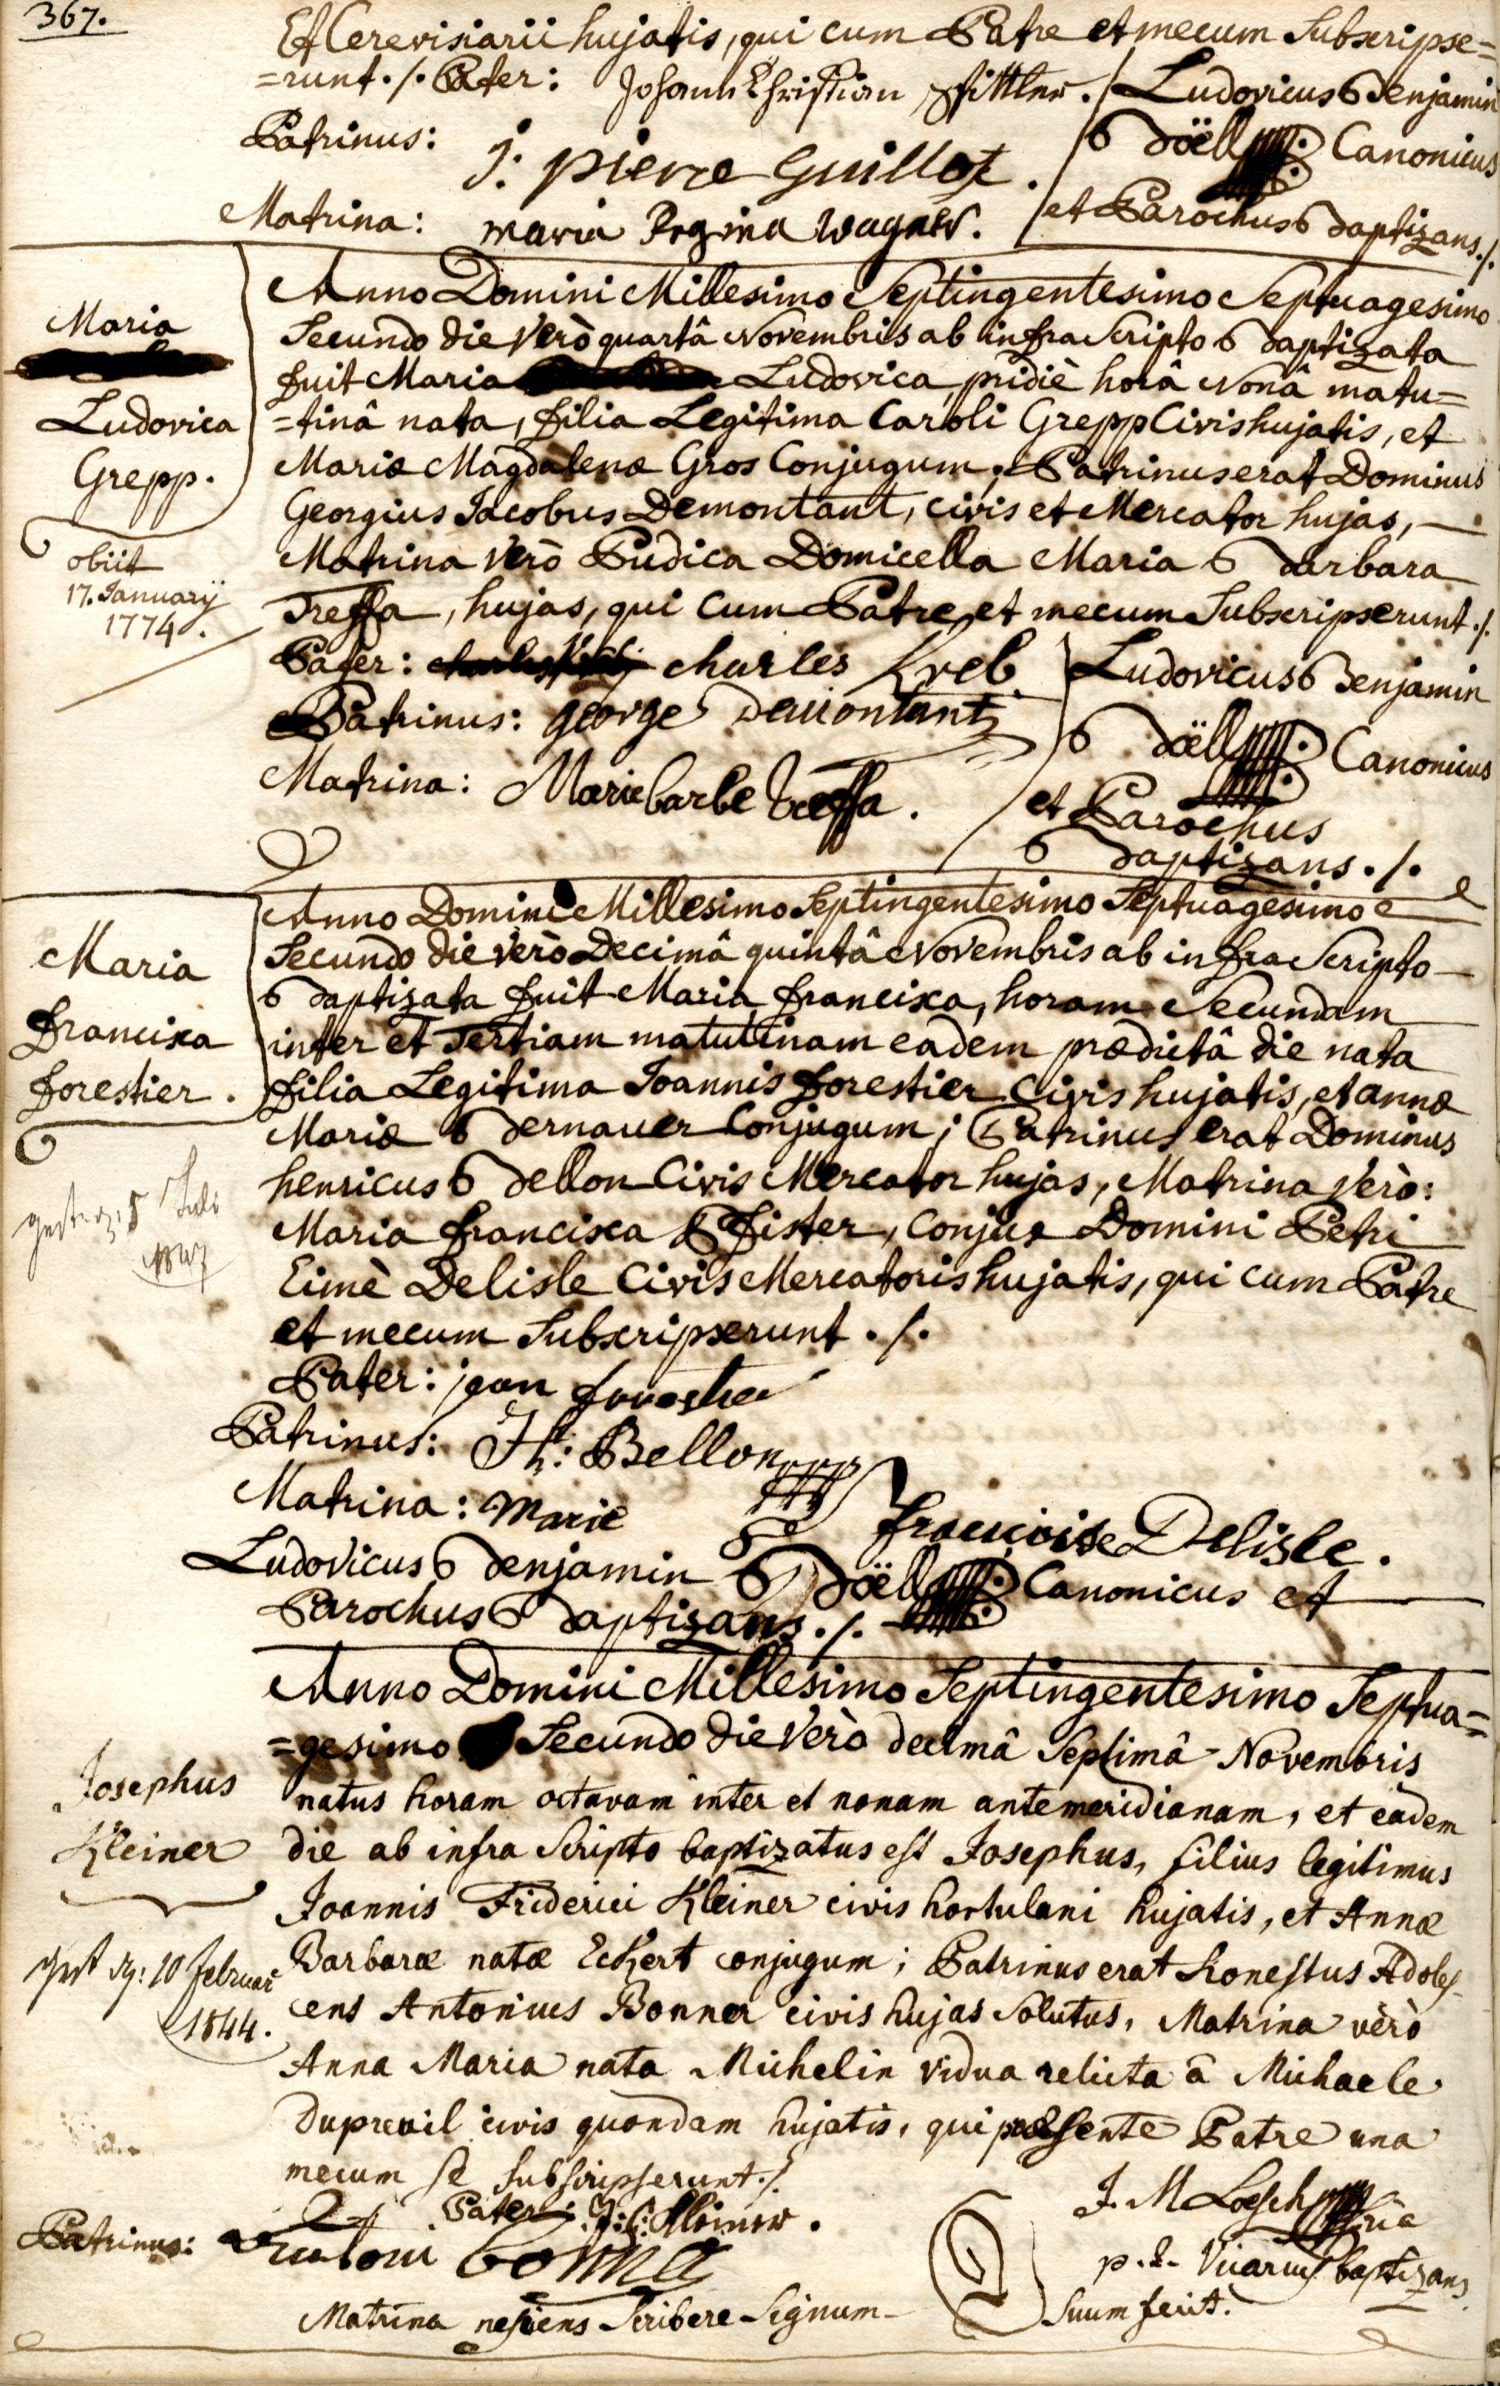 367.
Et Cerevisiarii hujatis, qui cum Patre et mecum Subscripse=
=runt ./. Pater: Johann Christian
Ludovicus Benjamin
Patrinus: J: pierre Guillot.
Böell Canonicus
Matrina: maria Regina Wagner.
et Parochus Baptizans ./.
Maria
Ludovica
Grepp.
obiit
17. Januarÿ
1774.
Anno Domini Millesimo Septingentesimo Septuagesimo
Secundo die verò quartâ Novembris ab infra Scripto Baptizata
fuit Maria Ludovica, pridiè horâ Nonâ matu=
=tinâ nata, filia Legitima Caroli Grepp Civis hujatis, et
Mariæ Magdalenæ Gros Conjugum; Patrinus erat Dominus
Georgius Jacobus Demontant, civis et Mercator hujas,
Matrina verò Pudica Domicella Maria Barbara
Treffa, hujas, qui Cum Patre, et mecum Subscripserunt ./.
Pater: charles Kreb
Ludovicus Benjamin
Patrinus: george Demontant
Böell Canonicus
Matrina: Marie barbe Treffa.
et Parochus
Baptizans ./.
Maria
Francisca
Forestier.
5 Juli
Anno Domini Millesimo Septingentesimo Septuagesimo
Secundo die verò Decimâ quintâ Novembris ab infra Scripto
Baptizata fuit Maria Francisca, horam Secundam
inter et Tertiam matutinam eadem prædictâ die nata
filia Legitima Joannis Forestier Civis hujatis, et annæ
Mariæ Bernauer Conjugum; Patrinus erat Dominus
henricus Bellon Civis Mercator hujas, Matrina verò:
Maria Francisca Pfister, Conjux Domini Petri
Eimè Delisle Civis Mercatoris hujatis, qui cum Patre
et mecum Subscripserunt ./.
Pater: jean forestier
Patrinus: Hk: Bellon
Matrina: Marie francoise Delisle.
Ludovicus Benjamin Böell Canonicus et
Parochus Baptizans ./.
Josephus
Kleiner
10 Februar
1844.
Anno Domini Millesimo Septingentesimo Septua=
=gesimo Secundo die verò decimâ Septimâ Novembris
natus horam octavam inter et nonam antemeridianam, et eâdem
die ab infra Scripto baptizatus est Josephus, filius legitimus
Joannis Friderici Kleiner civis hortulani hujatis, et Annæ
Barbaræ natæ Eckert conjugum; Patrinus erat honestus Adoles-
cens Antonius Bonner civis hujas Solutus, Matrina verò
Anna Maria nata Michelin vidua relicta â Michaele
Dupreuil civis quondam hujatis, qui præsente Patre una
mecum se subscripserunt ./.
Pater: J: f: Kleiner.
J. M. Loesch
Patrinus: antoni bonner
p. t. Vicarius baptizans
Matrina nesciens Scribere Signum
Suum fecit.